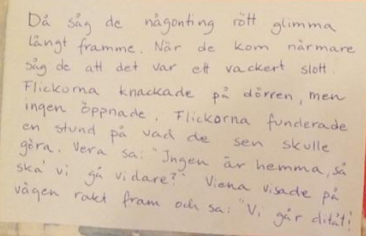 Då såg de någonting rött glimma
långt framme. När de kom närmare
såg de att det var ett vackert slott.
Flickorna knackade på dörren, men
ingen öppnade. Flickorna funderade
en stund på vad de sen skulle
göra. Vera sa: "Ingen är hemma, så
ska' vi gå vidare?" Viena visade på
vägen rakt fram och sa: "Vi går ditåt!